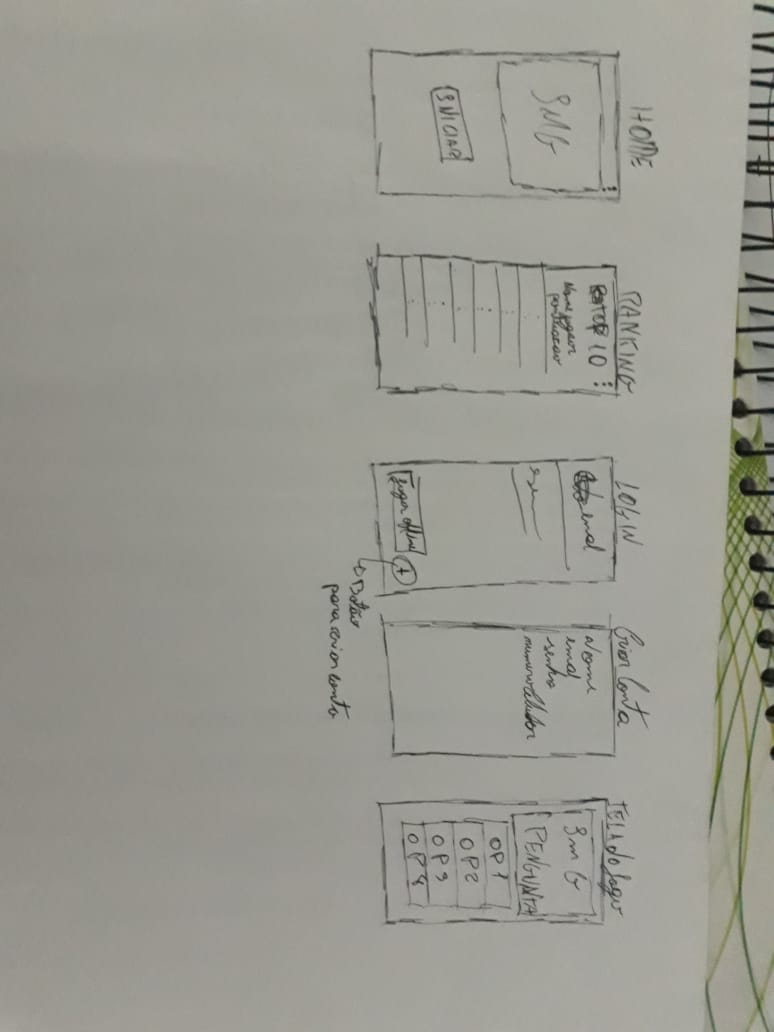 HOME
IMG
INICIAR
RANKING
TOP 10
Nome jogador
pontuacao
LOGIN
email
senha
Jogar offline
+
Botão
para criar conta
Criar Conta
Nome
email
senha
numero celular
TELA do Jogo
Im G
PERGUNTA
OP 1
OP 2
OP 3
OP 4